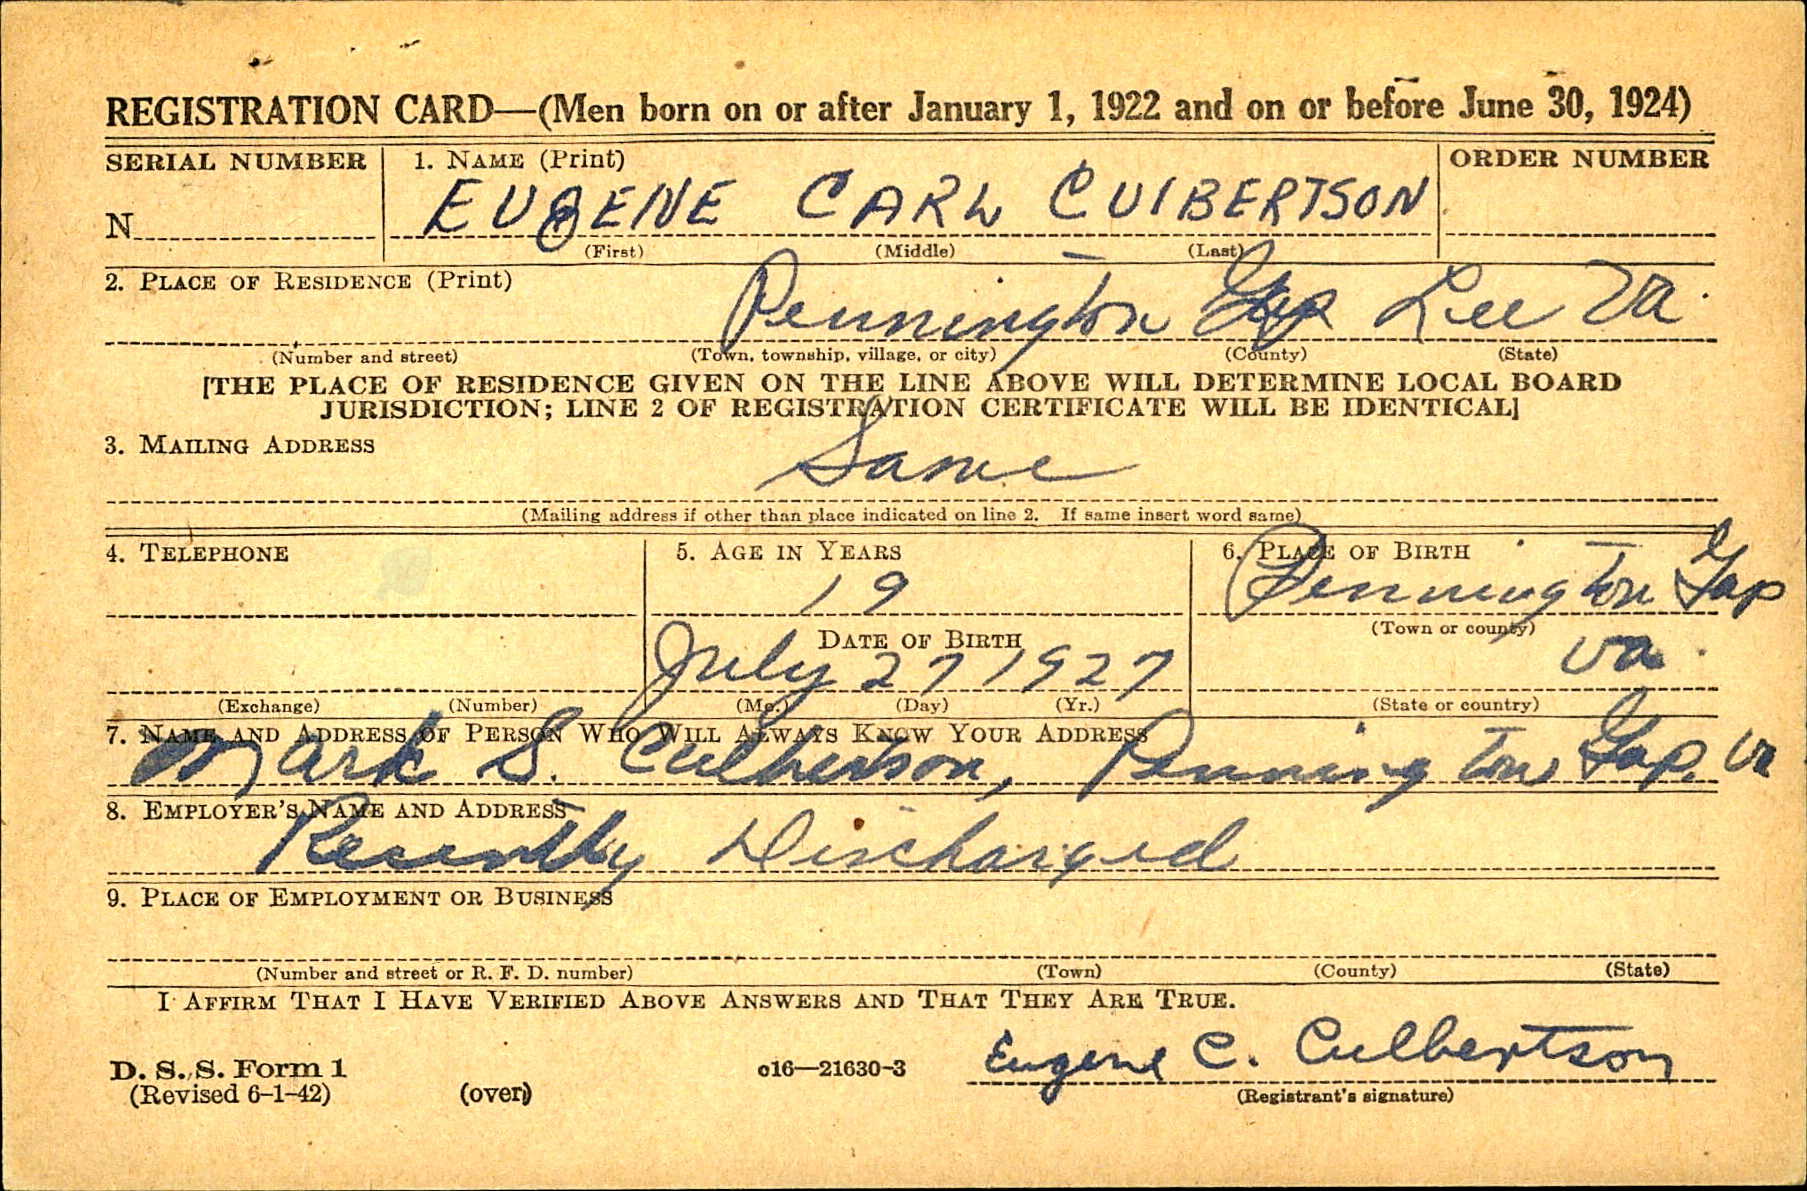 REGISTRATION CARD—(Men born on or after January 1, 1922 and on or before June 30, 1924)
SERIAL NUMBER
1. NAME (Print)
ORDER NUMBER
N
EUGENE CARL CULBERTSON
(First) (Middle) (Last)
2. PLACE OF RESIDENCE (Print)
Pennington Gap Lee Va.
(Number and street) (Town, township, village, or city) (County) (State)
[THE PLACE OF RESIDENCE GIVEN ON THE LINE ABOVE WILL DETERMINE LOCAL BOARD
JURISDICTION; LINE 2 OF REGISTRATION CERTIFICATE WILL BE IDENTICAL]
3. MAILING ADDRESS
Same
(Mailing address if other than place indicated on line 2. If same insert word same)
4. TELEPHONE
5. AGE IN YEARS
6. PLACE OF BIRTH
19
Pennington Gap
(Town or county)
DATE OF BIRTH
July 27 1927
Va.
(Exchange) (Number) (Mo.) (Day) (Yr.) (State or country)
7. NAME AND ADDRESS OF PERSON WHO WILL ALWAYS KNOW YOUR ADDRESS
Mark S. Culbertson, Pennington Gap, Va
8. EMPLOYER'S NAME AND ADDRESS
Recently Discharged
9. PLACE OF EMPLOYMENT OR BUSINESS
(Number and street or R. F. D. number) (Town) (County) (State)
I AFFIRM THAT I HAVE VERIFIED ABOVE ANSWERS AND THAT THEY ARE TRUE.
D. S. S. Form 1
(Revised 6-1-42)
(over)
c16—21630-3
Eugene C. Culbertson
(Registrant's signature)